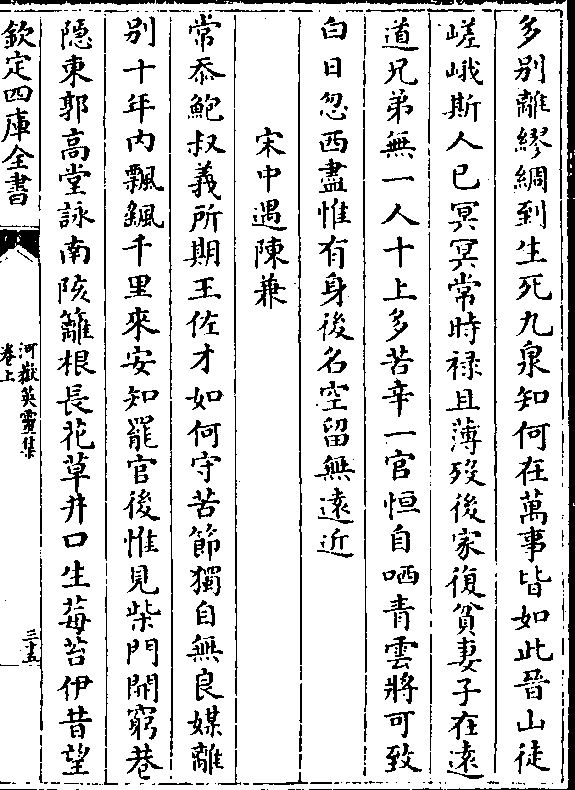 多别離繆綢到生死九泉知何在萬事皆如此晉山徒
嵯峨斯人已冥冥常時禄且薄歿後家復貧妻子在逺
道兄弟無一人十上多苦辛一官恒自哂青雲將可致
白日忽西盡惟有身後名空留無逺近
宋中遇陳兼
常忝鮑叔義所期王佐才如何守苦節獨自無良媒離
别十年内飄颻千里來安知罷官後惟見柴門開窮巷
隠東郭髙堂詠南陔籬根長花草井口生莓苔伊昔望
欽定四庫全書
河嶽英靈集
卷上
三十五